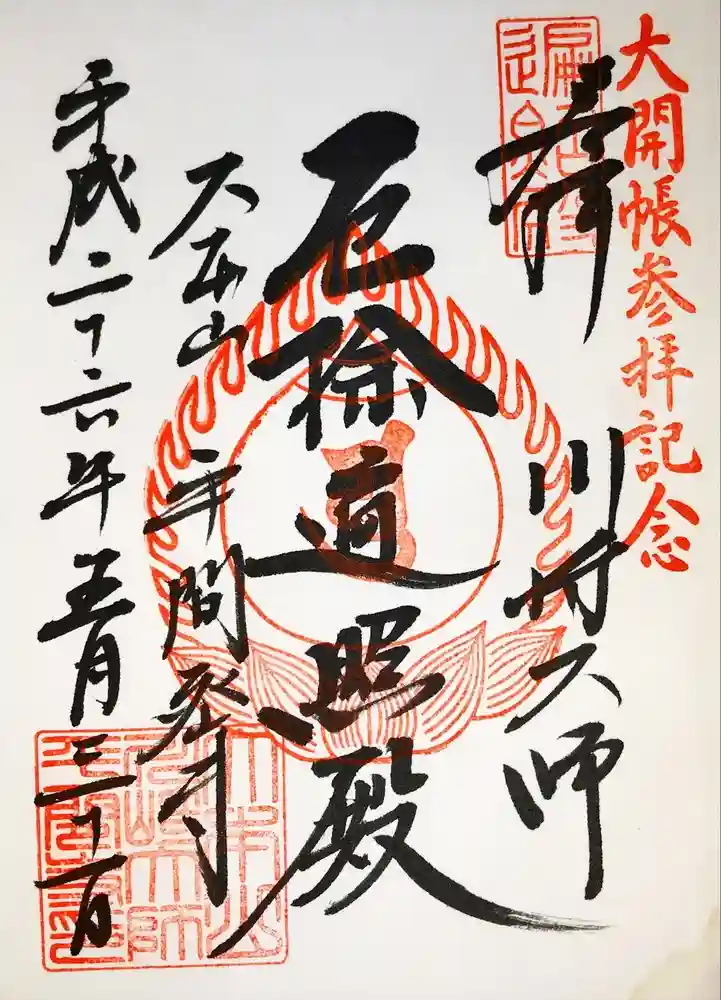 大開帳参拝記念
奉拝
川崎大師
厄除遍照殿
大本山
平間寺
平成二十六年五月三十一日